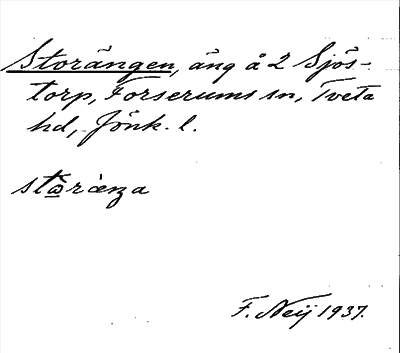 Storängen, äng å 2 Sjös-
torp, Forserums sn, Tveta
hd, Jönk. l.
F. Neij 1937.